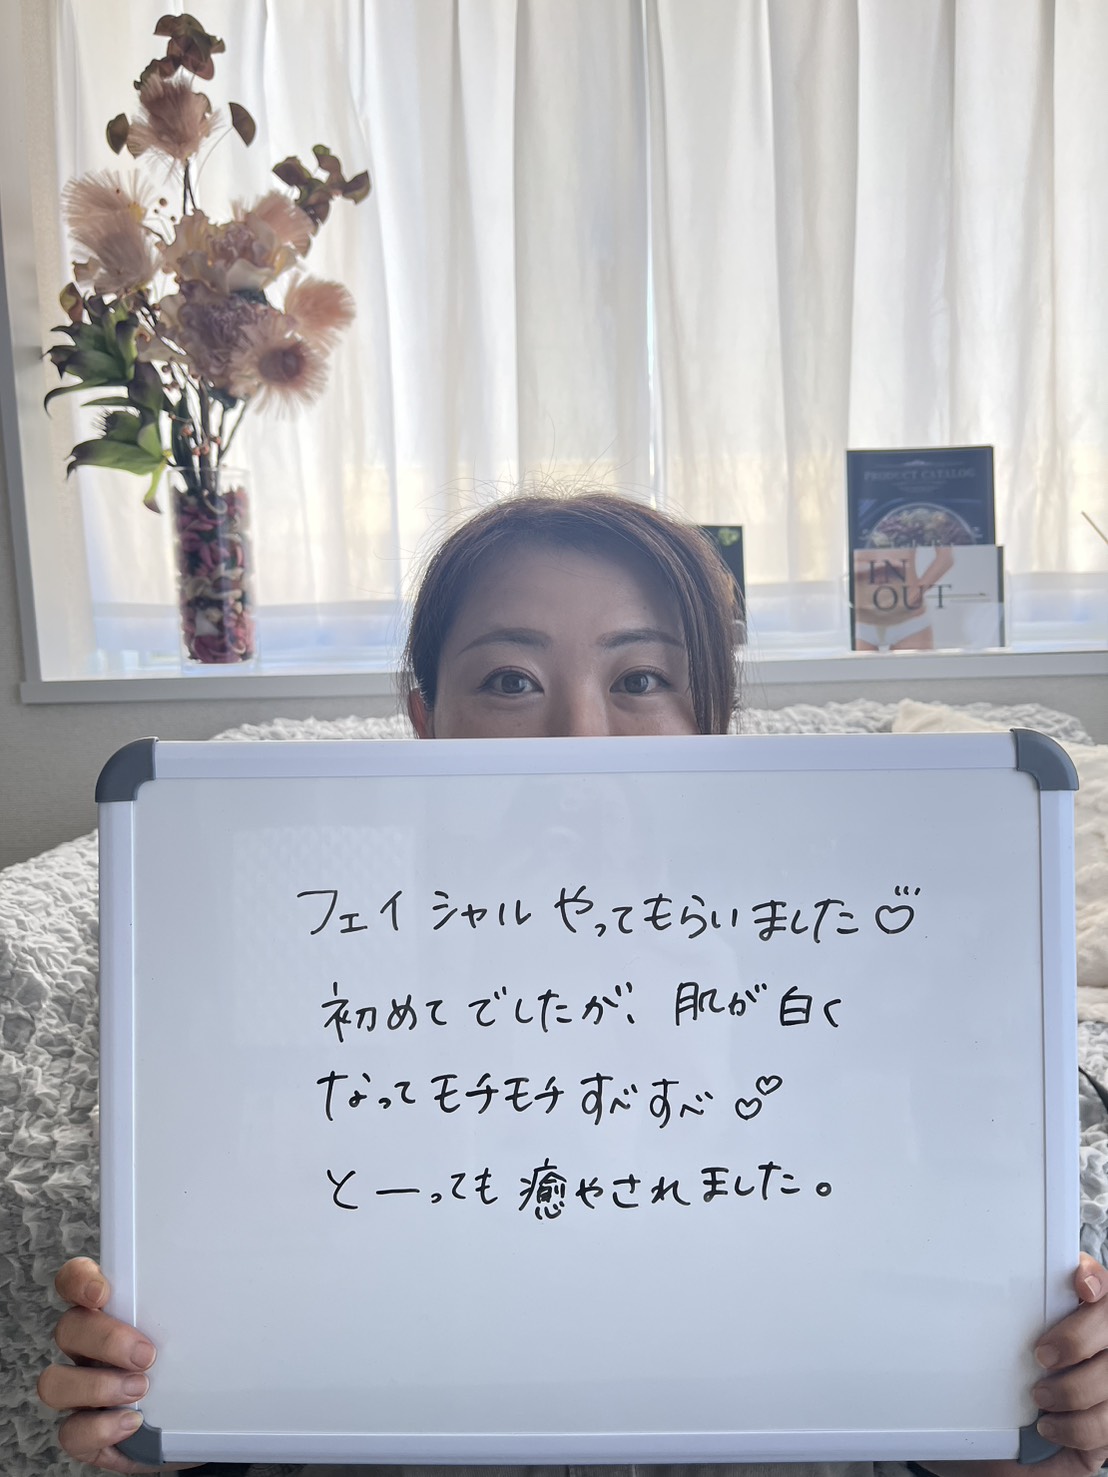 PRODUCT CATALOG
IN
OUT
フェイシャルやってもらいました♡
初めてでしたが、肌が白く
なってモチモチすべすべ♡♡
とーっても癒やされました。